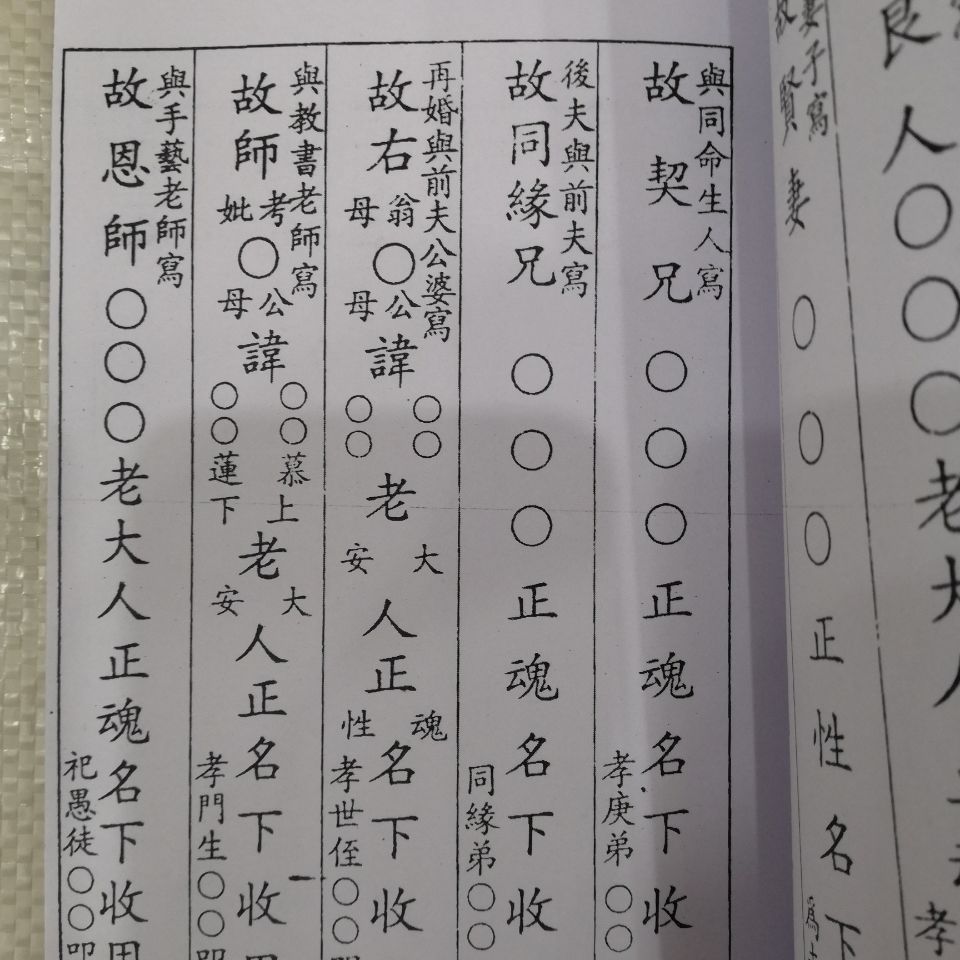 良人〇〇〇老大人
孝
妻子寫
故賢妻〇〇〇正性名下
與同命生人寫
故契兄〇〇〇正魂名下收
孝庚弟〇〇
後夫與前夫寫
故同緣兄〇〇〇正魂名下收
同緣弟〇〇
再婚與前夫公婆寫
故右翁母〇公母諱〇〇〇〇老大安人正魂性名下收
孝世侄〇〇叩
與教書老師寫
故師考妣〇公母諱〇〇慕上〇〇蓮下老大安人正名下收用
孝門生〇〇叩
與手藝老師寫
故恩師〇〇〇老大人正魂名下收用
祀愚徒〇〇叩